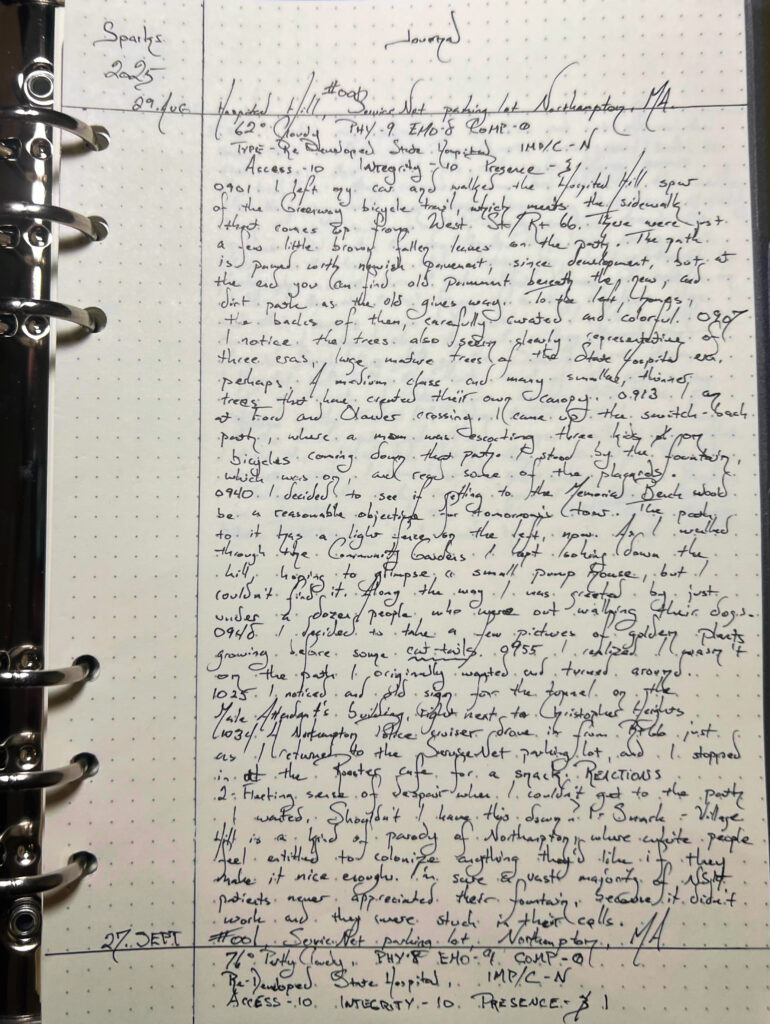 Sparks
2025
Journal
29. Aug
#001
Hospital Hill, ServiceNet parking lot Northampton, MA
62° Cloudy PHY-9 EMO-8 COMP-0
TYPE-Re Developed State Hospital IMP/C-N
Access-10 Integrity-10 Presence-
0901. I left my car and walked the Hospital Hill spur
of the Greenway bicycle trail, which meets the sidewalk
that comes up from West St/Rt 66. There were just
a few little brown fallen leaves on the path. The path
is paved with newish pavement, since development, but at
the end you can find old pavement beneath the new, and
dirt path as the old gives way. To the left, homes,
the backs of them, carefully curated and colorful. 0907
I notice the trees also seem clearly representative of
three eras, large mature trees of the State Hospital era
perhaps, A medium class and many smaller, thinner
trees that have created their own canopy. 0913 I am
at Ford and Olander crossing. I came up the switch-back
path, where a mom was escorting three kids on
bicycles coming down that path. I stood by the fountain,
which was on, and read some of the placards.
0940. I decided to see if getting to the Memorial Bench would
be a reasonable objective for tomorrow's tour. The path
to it has a light fence on the left, now. As I walked
through the Community Gardens I kept looking down the
hill, hoping to glimpse a small pump House, but I
couldn't find it. Along the way I was greeted by just
under a dozen people who were out walking their dogs.
0945. I decided to take a few pictures of golden plants
growing before some cat-tails. 0955 I realized I wasn't
on the path I originally wanted and turned around.
1025. I noticed and old sign for the tunnel on the
Male Attendant's building, right next to Christopher Heights
1034. A Northampton Police cruiser drove in from Rt 66 just
as I returned to the ServiceNet parking lot, and I stopped
in at the Rooster Cafe for a snack. REACTIONS
2- Fleeting sense of despair when I couldn't get to the path
I wanted, Shouldn't I have this down? Pr Snark - Village
Hill is a kind of parody of Northampton, where white people
feel entitled to colonize anything they'd like if they
make it nice enough. I'm sure a vast majority of NSH
patients never appreciated their fountain, because it didn't
work and they were stuck in their cells.
27. SEPT
#001, ServiceNet parking lot, Northampton, MA
76° Partly Cloudy, PHY-8 EMO-9 COMP-0
Re-Developed State Hospital, IMP/C-N
ACCESS-10. INTEGRITY-10 PRESENCE- 1